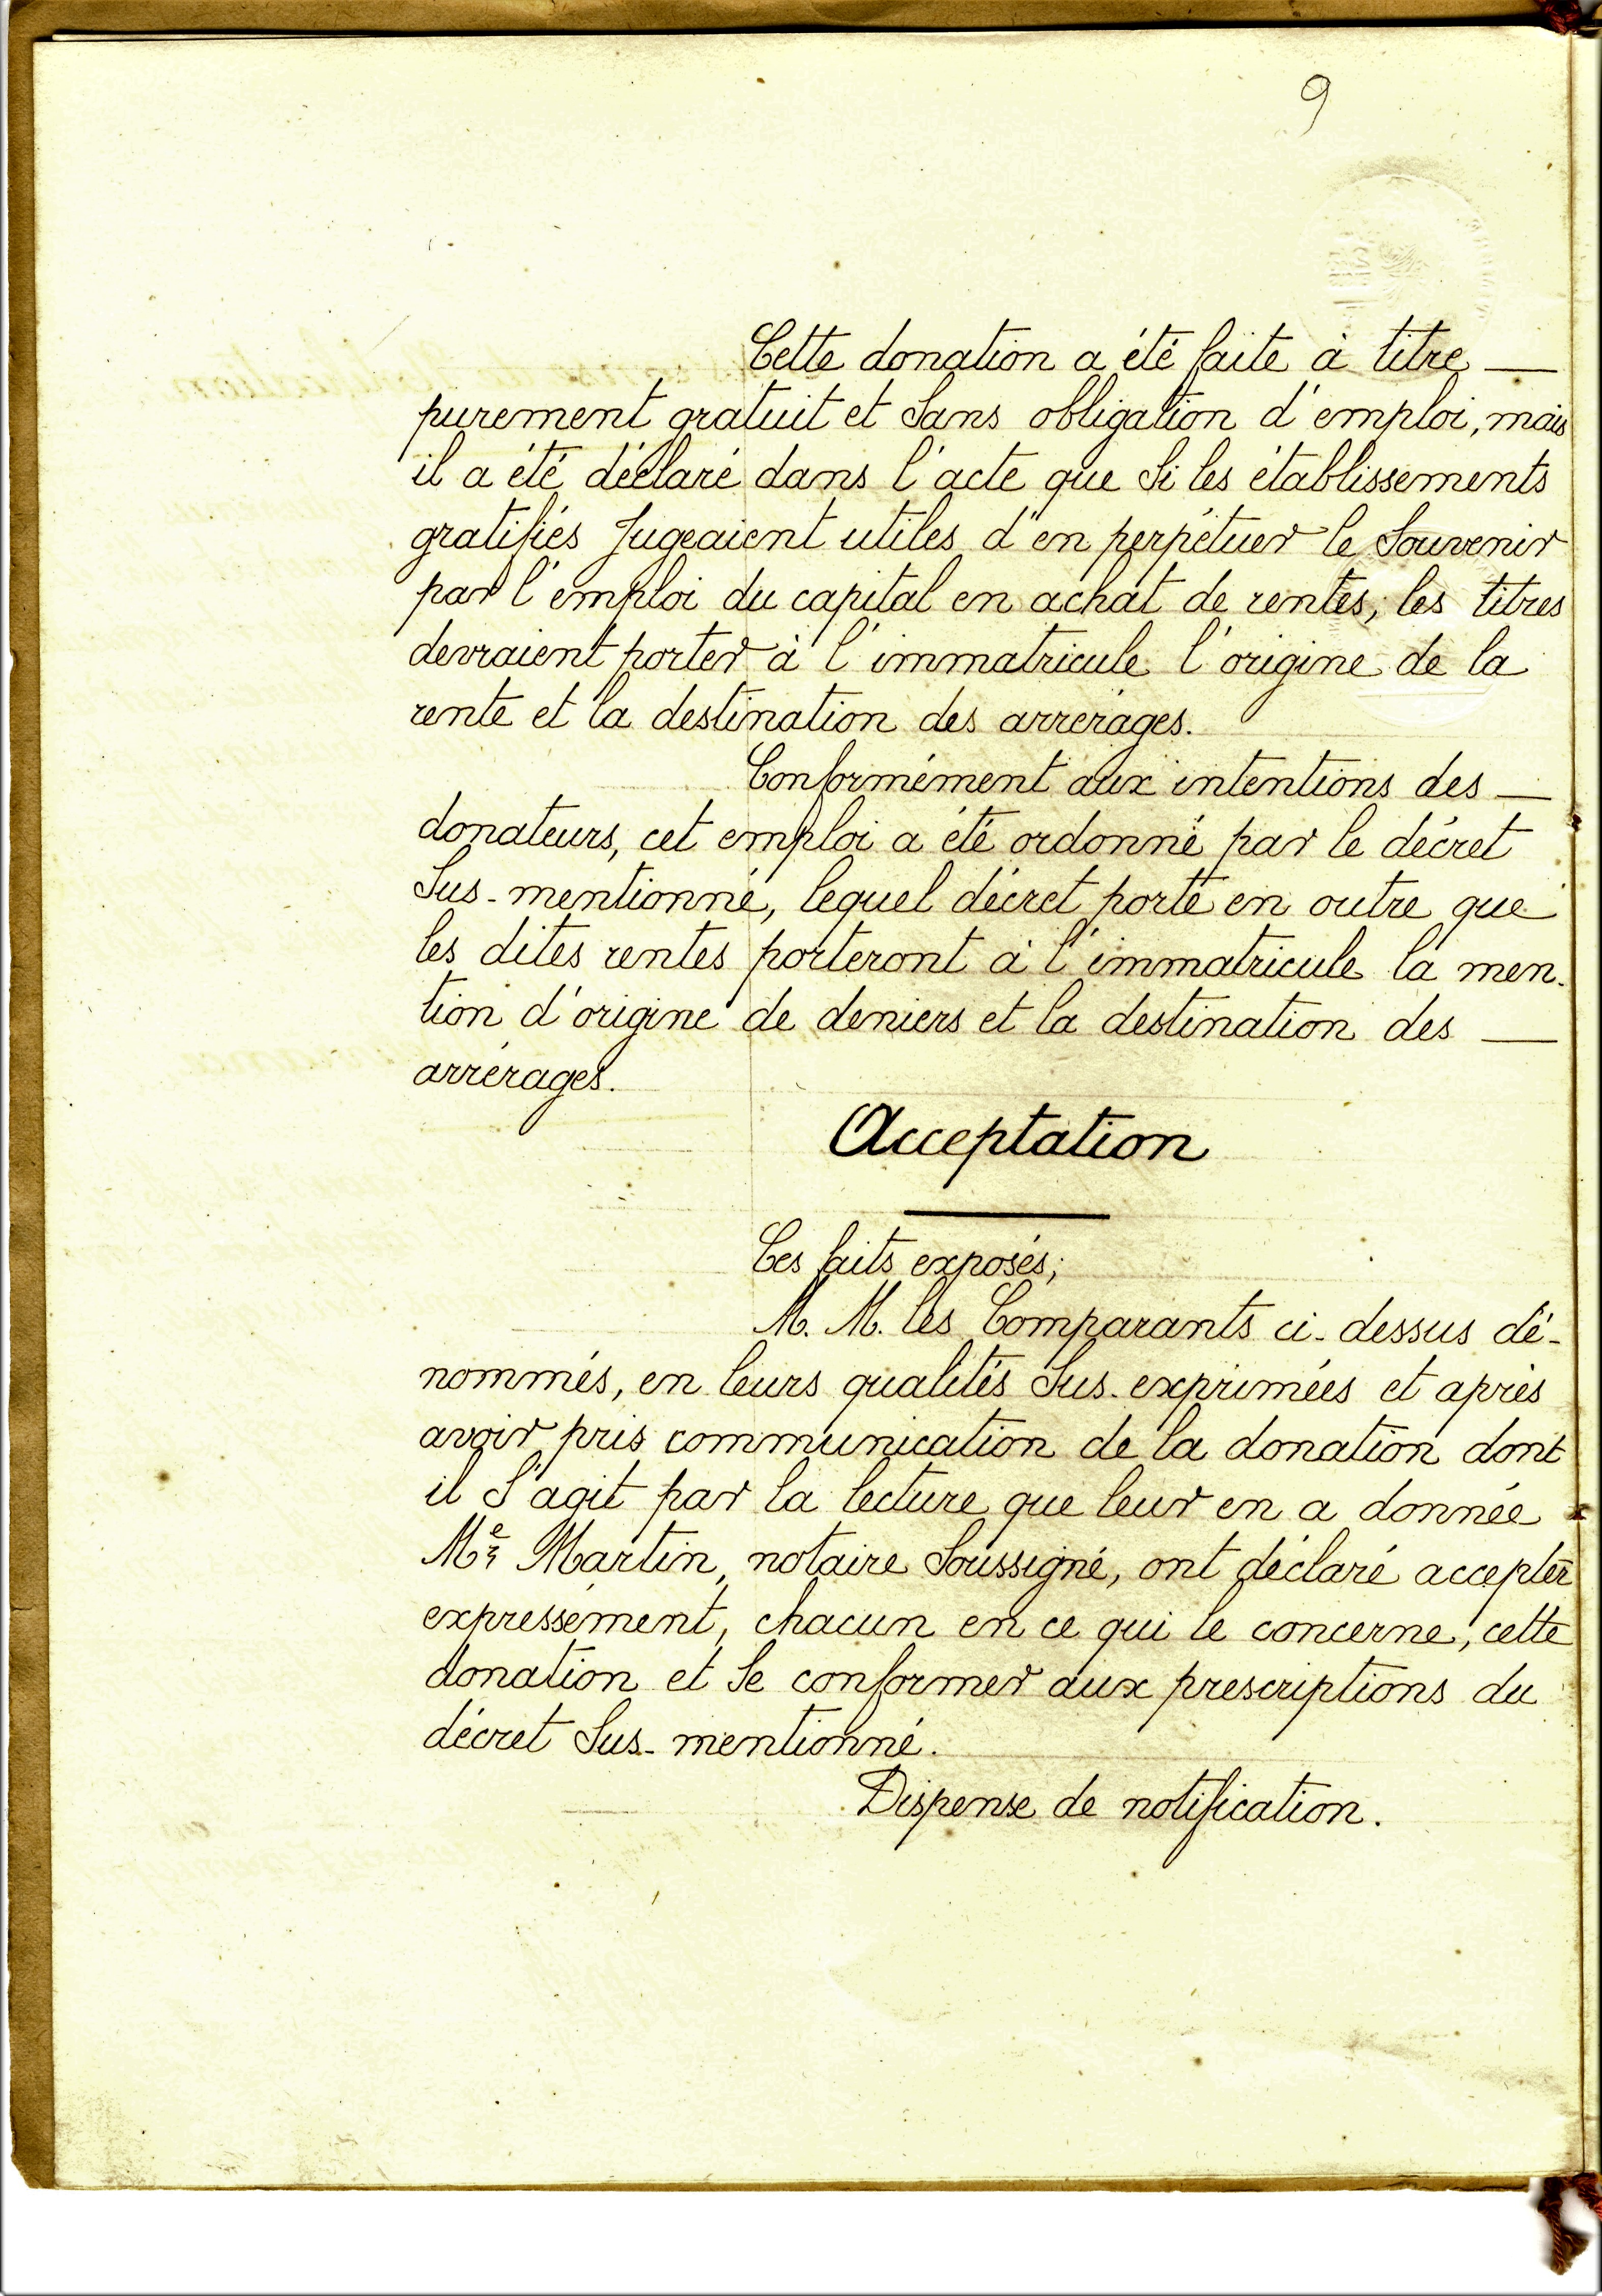 9
Cette donation a été faite à titre —
purement gratuit et sans obligation d'emploi, mais
il a été déclaré dans l'acte que si les établissements
gratifiés jugeaient utiles d'en perpétuer le souvenir
par l'emploi du capital en achat de rentes, les titres
devraient porter à l'immatricule l'origine de la
rente et la destination des arrérages.
Conformément aux intentions des —
donateurs, cet emploi a été ordonné par le décret
sus-mentionné, lequel décret porte en outre que
les dites rentes porteront à l'immatricule la men-
tion d'origine de deniers et la destination des —
arrérages.
Acceptation
Ces faits exposés;
M. M. les Comparants ci-dessus dé-
nommés, en leurs qualités sus-exprimées et après
avoir pris communication de la donation dont
il s'agit par la lecture que leur en a donnée
Me Martin, notaire soussigné, ont déclaré accepter
expressément, chacun en ce qui le concerne, cette
donation et se conformer aux prescriptions du
décret sus-mentionné.
Dispense de notification.